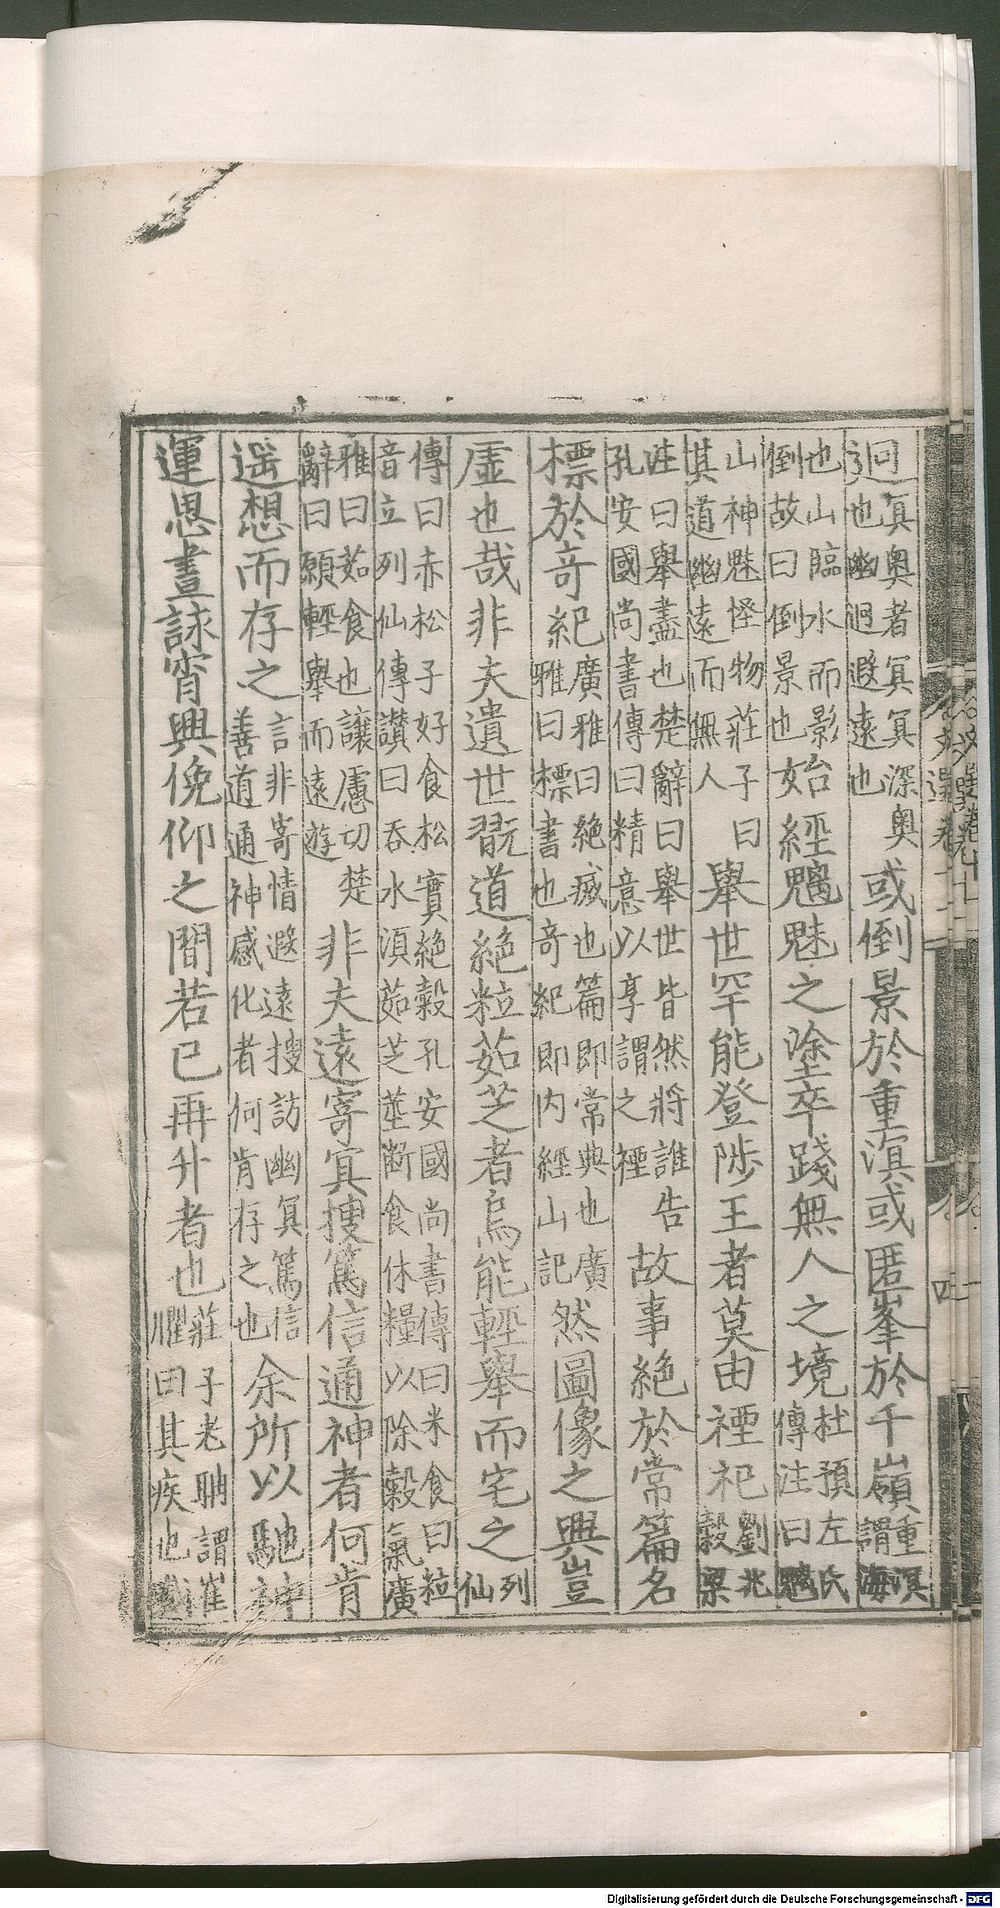 迥冥奧者冥冥深奧也幽迥遐遠也或倒景於重溟或匿峯於千嶺重溟謂海
也山臨水而影倒故曰倒景也始經魑魅之塗卒踐無人之境杜預左氏傳注曰魑
山神魅怪物莊子曰其道幽遠而無人舉世罕能登陟王者莫由禋祀劉兆穀梁
注曰舉盡也楚辭曰舉世皆然將誰告孔安國尚書傳曰精意以享謂之禋故事絕於常篇名
標於奇紀廣雅曰絕滅也篇即常典也廣雅曰標書也奇紀即内經山記然圖像之興豈
虛也哉非夫遺世翫道絕粒茹芝者烏能輕舉而宅之列仙
傳曰赤松子好食松實絕穀孔安國尚書傳曰米食曰粒音立列仙傳讃曰吞水湏茹芝莖斷食休糧以除穀氣廣
雅曰茹食也讓慮切楚辭曰願輕舉而遠遊非夫遠寄冥搜篤信通神者何肯
遥想而存之言非寄情遐遠搜訪幽冥篤信善道通神感化者何肯存之也余所以馳神
運思晝詠宵興俛仰之間若已再升者也莊子老聃謂崔瞿曰其疾也
文選卷十一
四
Digitalisierung gefördert durch die Deutsche Forschungsgemeinschaft - DFG